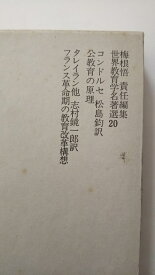 梅根悟 責任編集
世界教育学名著選20
コンドルセ 松島鈞訳
公教育の原理
タレイラン他 志村鏡一郎訳
フランス革命期の教育改革構想